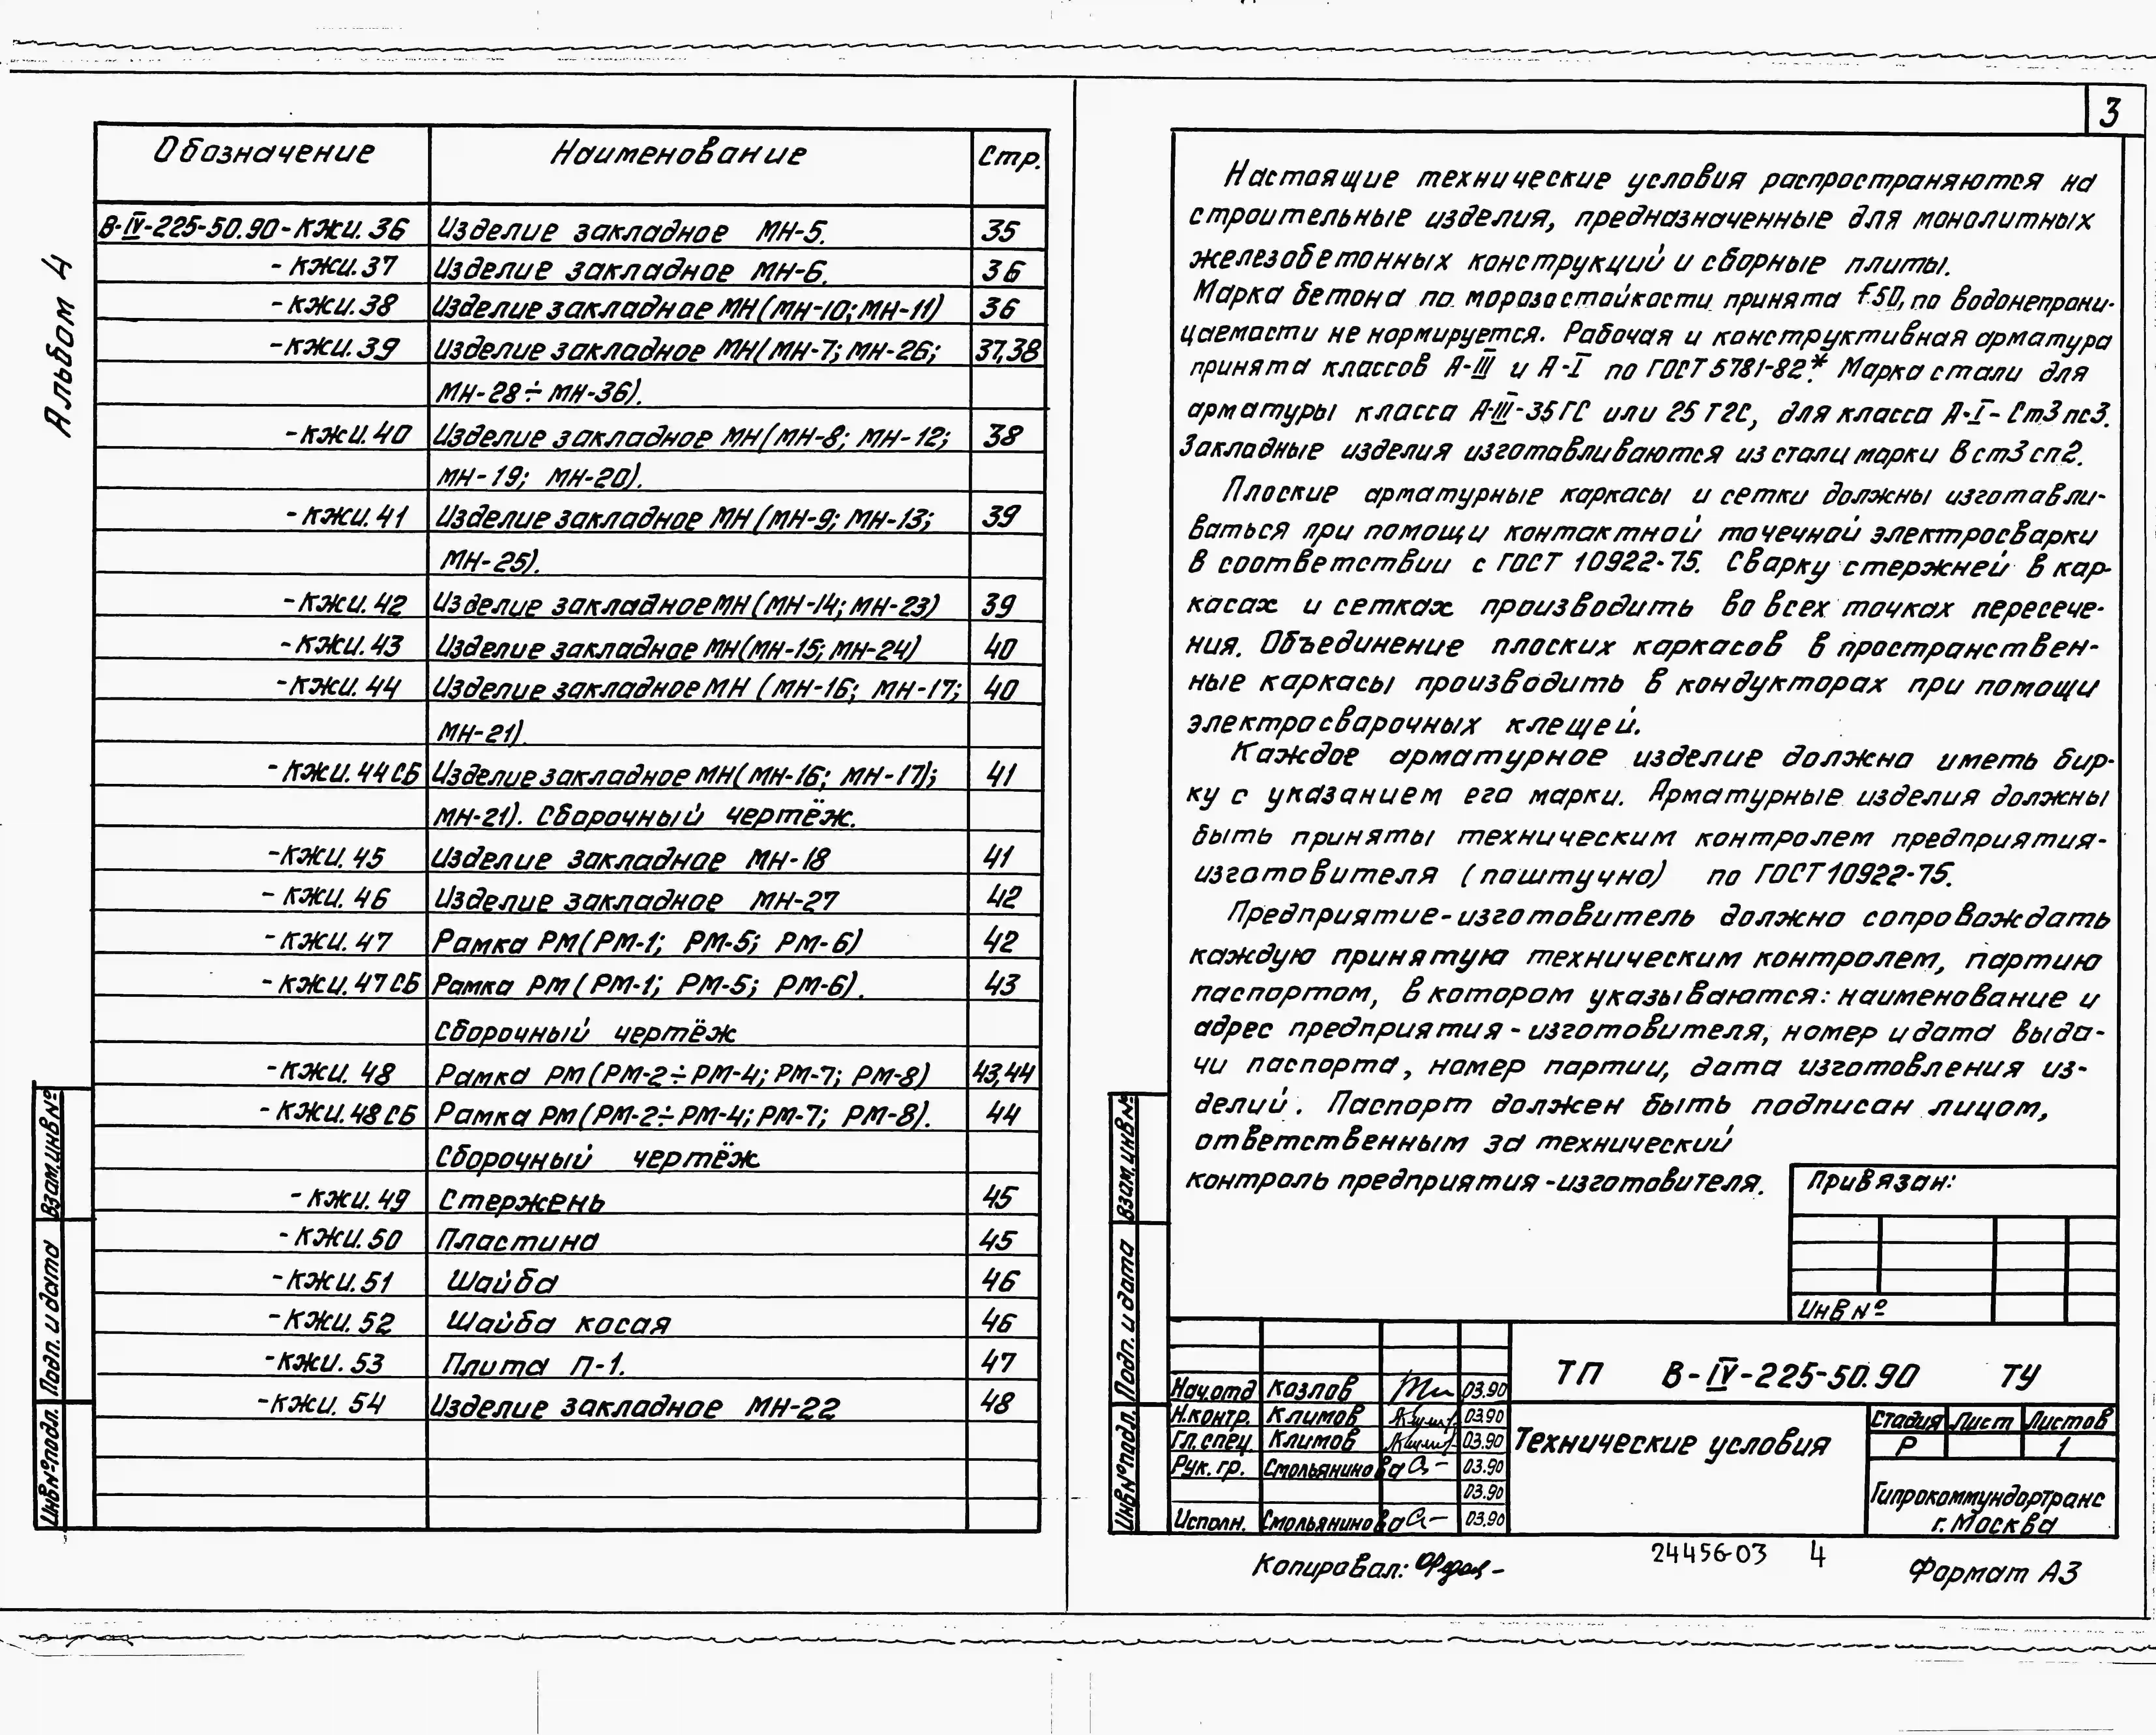 Альбом 4
Обозначение Наименование Стр.
В-IV-225-50.90-КЖИ.36 Изделие закладное МН-5. 35
-КЖИ.37 Изделие закладное МН-6. 36
-КЖИ.38 Изделие закладное МН(МН-10; МН-11) 36
-КЖИ.39 Изделие закладное МН(МН-7; МН-26; 37,38
МН-28÷МН-36).
-КЖИ.40 Изделие закладное МН(МН-8; МН-12; 38
МН-19; МН-20).
-КЖИ.41 Изделие закладное МН(МН-9; МН-13; 39
МН-25).
-КЖИ.42 Изделие закладное МН(МН-14; МН-23) 39
-КЖИ.43 Изделие закладное МН(МН-15; МН-24) 40
-КЖИ.44 Изделие закладное МН (МН-16; МН-17; 40
МН-21).
-КЖИ.44СБ Изделие закладное МН(МН-16; МН-17); 41
МН-21). Сборочный чертёж.
-КЖИ.45 Изделие закладное МН-18 41
-КЖИ.46 Изделие закладное МН-27 42
-КЖИ.47 Рамка РМ(РМ-1; РМ-5; РМ-6) 42
-КЖИ.47СБ Рамка РМ(РМ-1; РМ-5; РМ-6). 43
Сборочный чертёж
-КЖИ.48 Рамка РМ(РМ-2÷РМ-4; РМ-7; РМ-8) 43,44
-КЖИ.48СБ Рамка РМ(РМ-2÷РМ-4; РМ-7; РМ-8). 44
Сборочный чертёж
-КЖИ.49 Стержень 45
-КЖИ.50 Пластина 45
-КЖИ.51 Шайба 46
-КЖИ.52 Шайба косая 46
-КЖИ.53 Плита П-1. 47
-КЖИ.54 Изделие закладное МН-22 48
Взам.инв№
Подп. и дата
Инв№подл.
3
Настоящие технические условия распространяются на
строительные изделия, предназначенные для монолитных
железобетонных конструкций и сборные плиты.
Марка бетона по морозостойкости принята F50, по водонепрони-
цаемости не нормируется. Рабочая и конструктивная арматура
принята классов А-III и А-I по ГОСТ 5781-82.* Марка стали для
арматуры класса А-III-35ГС или 25Г2С, для класса А-I-Ст3пс3.
Закладные изделия изготавливаются из стали марки Вст3сп2.
Плоские арматурные каркасы и сетки должны изготавли-
ваться при помощи контактной точечной электросварки
в соответствии с ГОСТ 10922-75. Сварку стержней в кар-
касах и сетках производить во всех точках пересече-
ния. Объединение плоских каркасов в пространствен-
ные каркасы производить в кондукторах при помощи
электросварочных клещей.
Каждое арматурное изделие должно иметь бир-
ку с указанием его марки. Арматурные изделия должны
быть приняты техническим контролем предприятия-
изготовителя (поштучно) по ГОСТ10922-75.
Предприятие-изготовитель должно сопровождать
каждую принятую техническим контролем, партию
паспортом, в котором указываются: наименование и
адрес предприятия-изготовителя, номер и дата выда-
чи паспорта, номер партии, дата изготовления из-
делий. Паспорт должен быть подписан лицом,
ответственным за технический
контроль предприятия-изготовителя.
Привязан:
Инв№
Взам.инв№
Подп. и дата
Инв№подл.
ТП В-IV-225-50.90 ТУ
Нач.отд Козлов 03.90
Н.контр. Климов 03.90
Гл.спец. Климов 03.90
Рук.гр. Смольянинова 03.90
03.90
Исполн. Смольянинова 03.90
Технические условия
Стадия Лист Листов
Р 1
Гипрокоммундортранс
г.Москва
Копировал:
24456-03 4
Формат А3